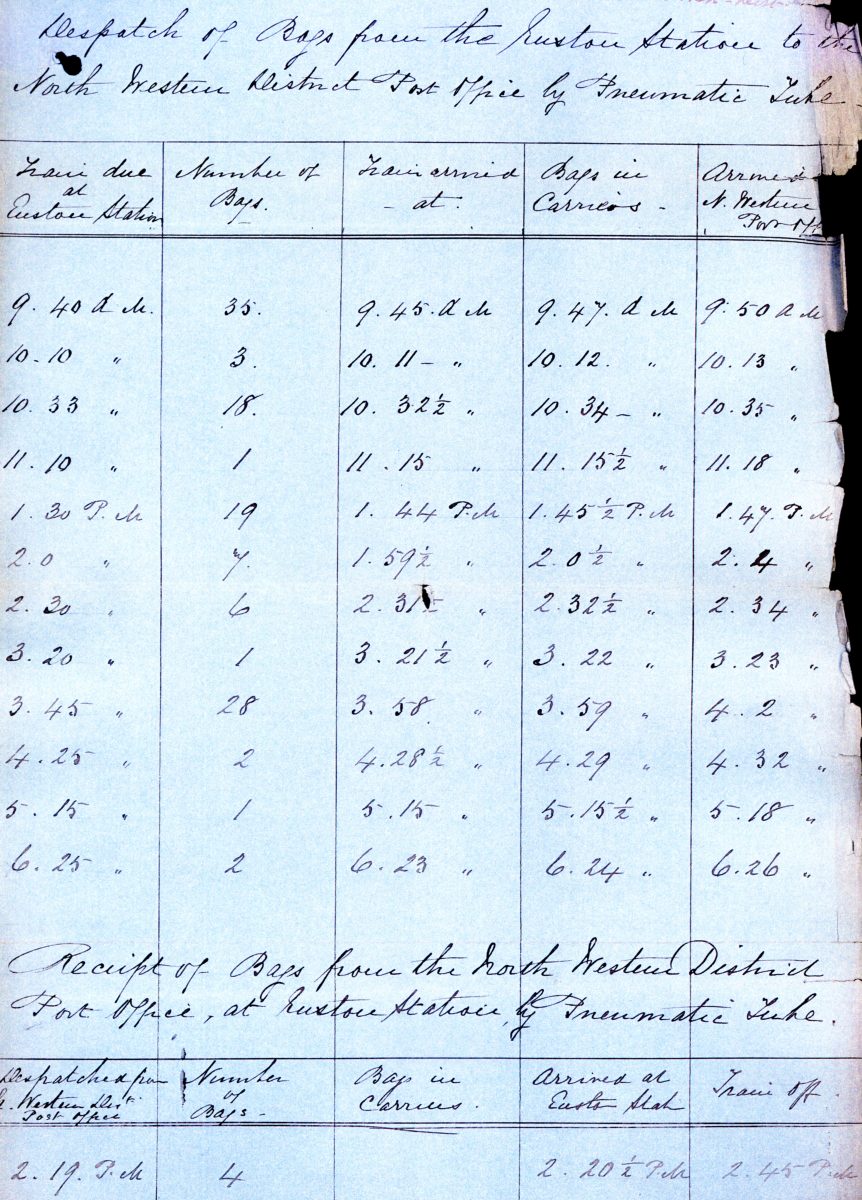 Despatch of Bags from the Euston Station to the
North Western District Post Office by Pneumatic Tube
Train due at Euston Station | Number of Bags. | Train arrived at. | Bags in Carriers | Arrived N. Western Post Off
9. 40 A M. | 35. | 9. 45. A M | 9. 47. A M | 9. 50 A M
10. 10 " | 3. | 10. 11 — " | 10. 12. " | 10. 13 "
10. 33 " | 18. | 10. 32½ " | 10. 34 — " | 10. 35 "
11. 10 " | 1 | 11. 15 " | 11. 15½ " | 11. 18 "
1. 30 P. M | 19 | 1. 44 P. M | 1. 45½ P. M | 1. 47. P. M
2. 0 " | 7. | 1. 59½ " | 2. 0½ " | 2. 4 "
2. 30 " | 6 | 2. 31½ " | 2. 32½ " | 2. 34 "
3. 20 " | 1 | 3. 21½ " | 3. 22 " | 3. 23 "
3. 45 " | 28 | 3. 58 " | 3. 59 " | 4. 2 "
4. 25 " | 2 | 4. 28½ " | 4. 29 " | 4. 32 "
5. 15 " | 1 | 5. 15 " | 5. 15½ " | 5. 18 "
6. 25 " | 2 | 6. 23 " | 6. 24 " | 6. 26 "
Receipt of Bags from the North Western District
Post Office, at Euston Station, by Pneumatic Tube.
Despatched from Western Dist Post Office | Number of Bags - | Bags in Carriers. | Arrived at Euston Stat | Train off.
2. 19. P. M | 4 | 2. 20½ P. M | 2. 45 P. M